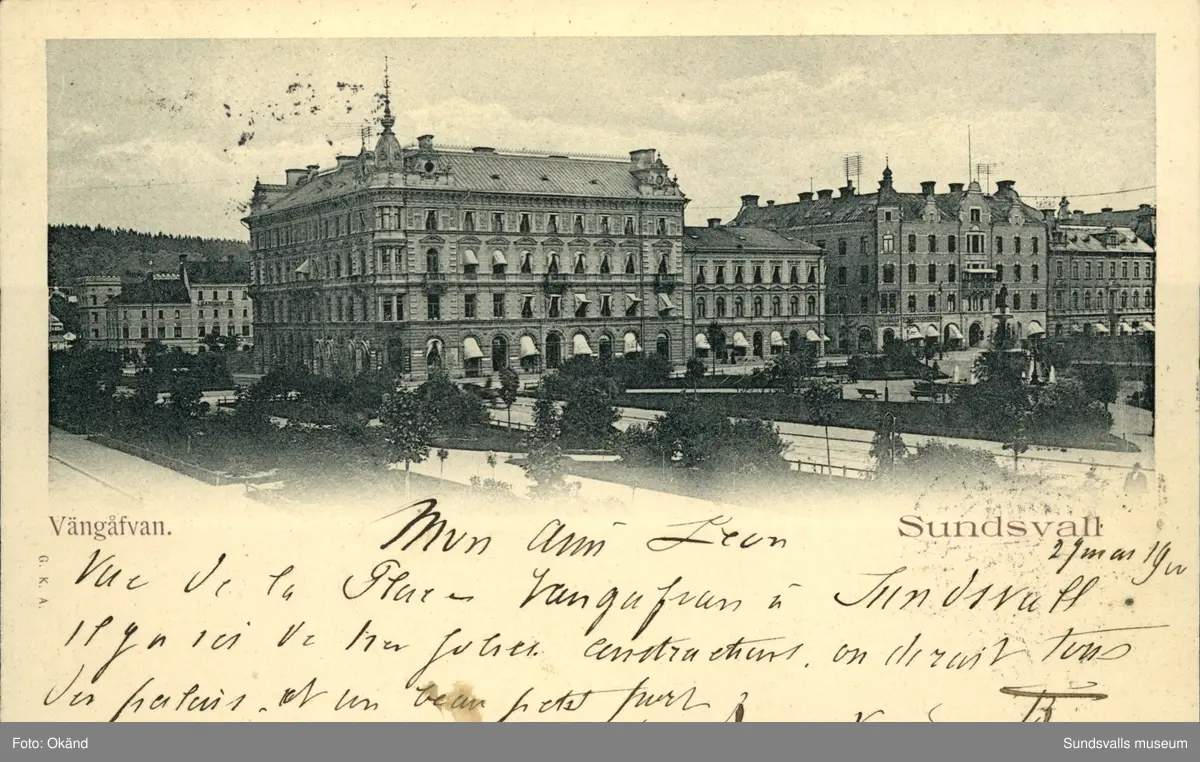 Vängåfvan.
Sundsvall
G. K. A.
Mon Ami Leon
29 mars 1900
Vue de la Place Vangafvan à Sundsvall
Il y a ici de tres jolies constructions, on dirait tous
des palais, et un beau petit port
Foto: Okänd
Sundsvalls museum